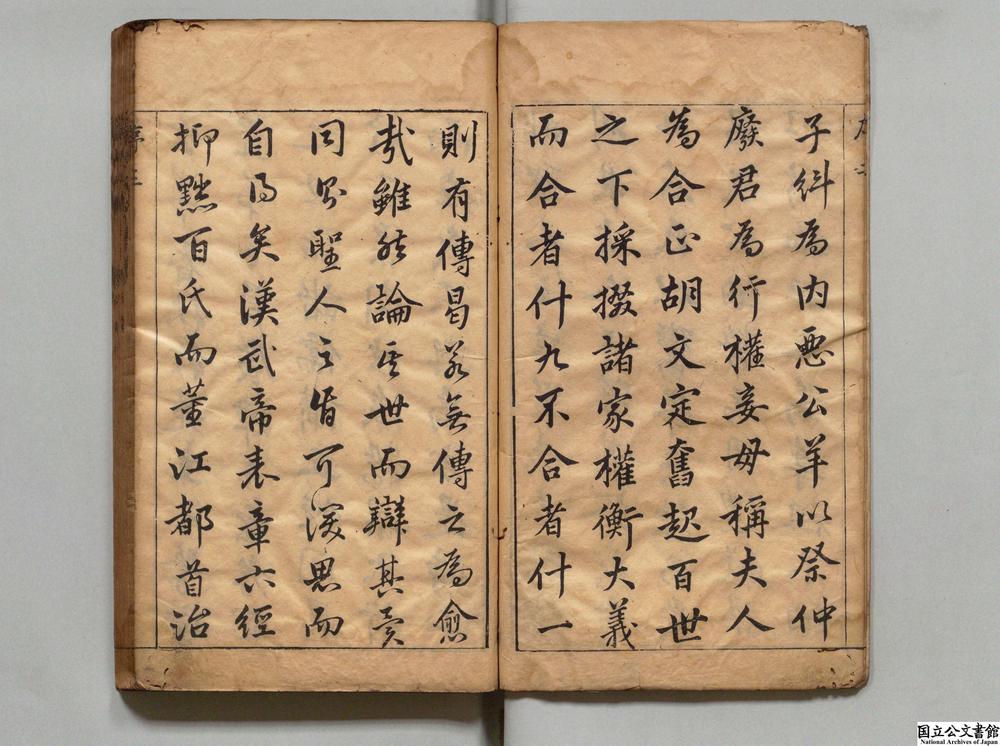 子糾為内惡公羊以祭仲
廢君為行權妾母稱夫人
為合正胡文定奮起百世
之下採掇諸家權衡大義
而合者什九不合者什一
則有傳曷若無傳之為愈
哉雖然論其世而辯其異
同則聖人之旨可深思而
自得矣漢武帝表章六經
抑黜百氏而董江都首治
序三
国立公文書館
National Archives of Japan